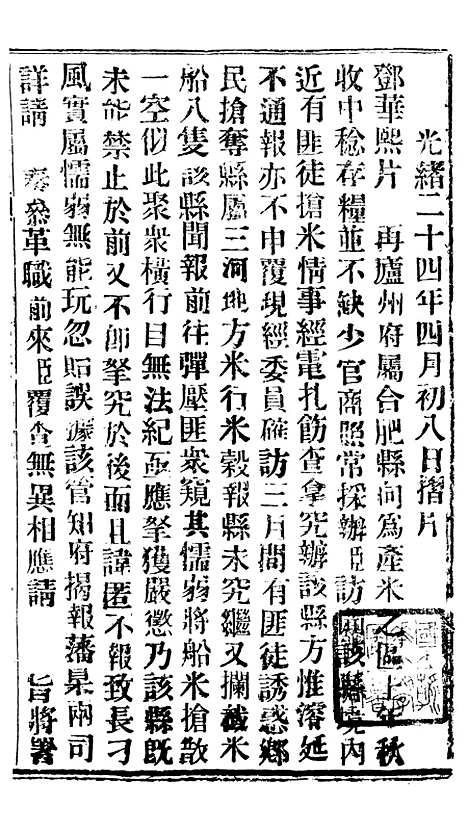 光緒二十四年四月初八日摺片
鄧華熙片　再廬州府屬合肥縣向爲產米之區上年秋
收中稔存糧並不缺少官商照常採辦臣訪聞該縣境內
近有匪徒搶米情事經電扎飭查拿究辦該縣方惟濬延
不通報亦不申覆現經委員確訪三月間有匪徒誘惑鄉
民搶奪縣屬三河地方米行米穀報縣未究繼又攔截米
船八隻該縣聞報前往彈壓匪衆窺其懦弱將船米搶散
一空似此聚衆橫行目無法紀亟應拏獲嚴懲乃該縣既
未能禁止於前又不卽拏究於後而且諱匿不報致長刁
風實屬懦弱無能玩忽貽誤據該管知府揭報藩臬兩司
詳請　奏叅革職前來臣覆查無異相應請　旨將署